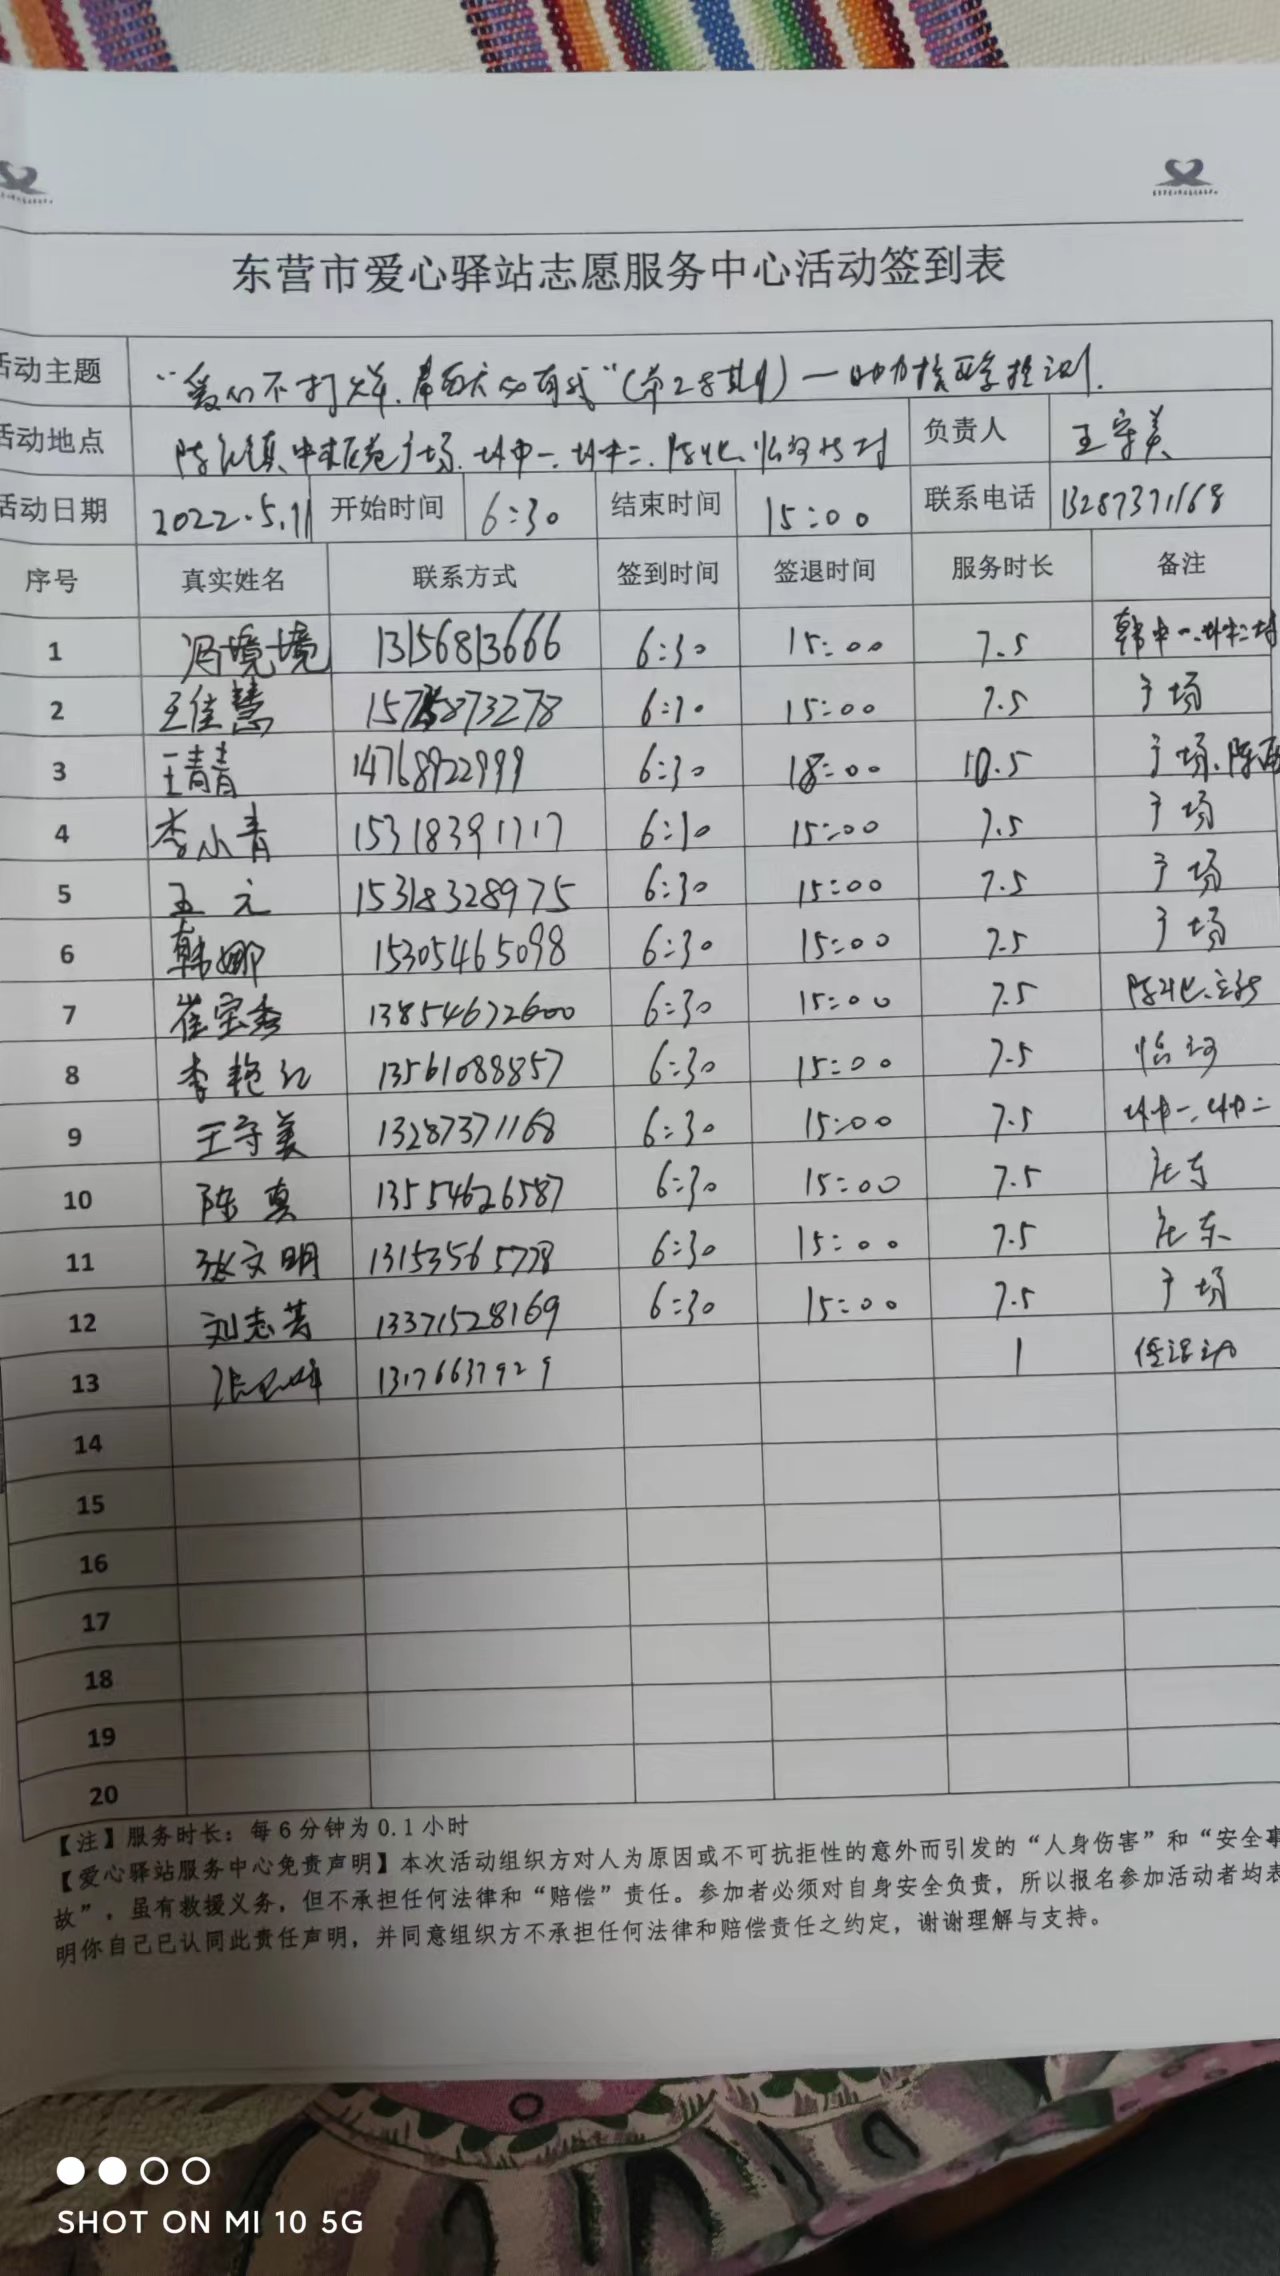 东营市爱心驿站志愿服务中心活动签到表
活动主题 "爱心不打烊, 有我" (第28期) — 助力核酸检测.
活动地点 广场. 负责人 王守美
活动日期 2022.5.11 开始时间 6:30 结束时间 15:00 联系电话 13287371168
序号 真实姓名 联系方式 签到时间 签退时间 服务时长 备注
1 冯境境 13156813666 6:30 15:00 7.5
2 王佳慧 873278 6:30 15:00 7.5 广场
3 王青青 14768922999 6:30 18:00 10.5 广场.
4 李小青 15318391717 6:30 15:00 7.5 广场
5 王元 15318328975 6:30 15:00 7.5 广场
6 韩娜 15305465098 6:30 15:00 7.5 广场
7 崔宝秀 13854672600 6:30 15:00 7.5
8 李艳红 13561088857 6:30 15:00 7.5
9 王守美 13287371168 6:30 15:00 7.5
10 陈真 13554626587 6:30 15:00 7.5
11 张文明 13153565778 6:30 15:00 7.5
12 刘志芳 13371528169 6:30 15:00 7.5 广场
13 13176637929 1
14
15
16
17
18
19
20
【注】服务时长：每6分钟为0.1小时
【爱心驿站服务中心免责声明】本次活动组织方对人为原因或不可抗拒性的意外而引发的“人身伤害”和“安全事
故”，虽有救援义务，但不承担任何法律和“赔偿”责任。参加者必须对自身安全负责，所以报名参加活动者均表
明你自己已认同此责任声明，并同意组织方不承担任何法律和赔偿责任之约定，谢谢理解与支持。
SHOT ON MI 10 5G